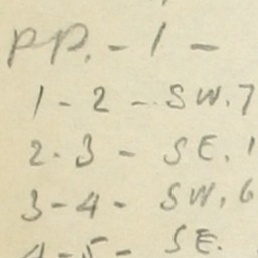 PP. - 1 -
1 - 2 - SW. 7
2 - 3 - SE. 1
3 - 4 - SW. 6
4 - 5 - SE.